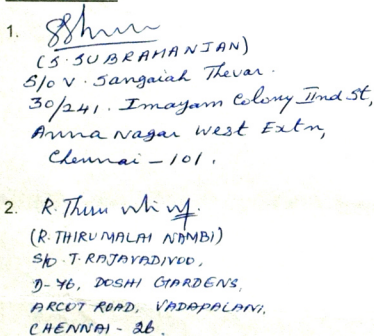 1.
(S. SUBRAMANIAN)
S/o V. Sangaiah Thevar.
30/241. Imayam Colony IInd St,
Anna Nagar West Extn,
Chennai - 101.
2. R. Thiru
(R. THIRUMALAI NAMBI)
S/o. T. RAJAVADIVOO,
D-46, DOSHI GARDENS,
ARCOT ROAD, VADAPALANI,
CHENNAI - 26.